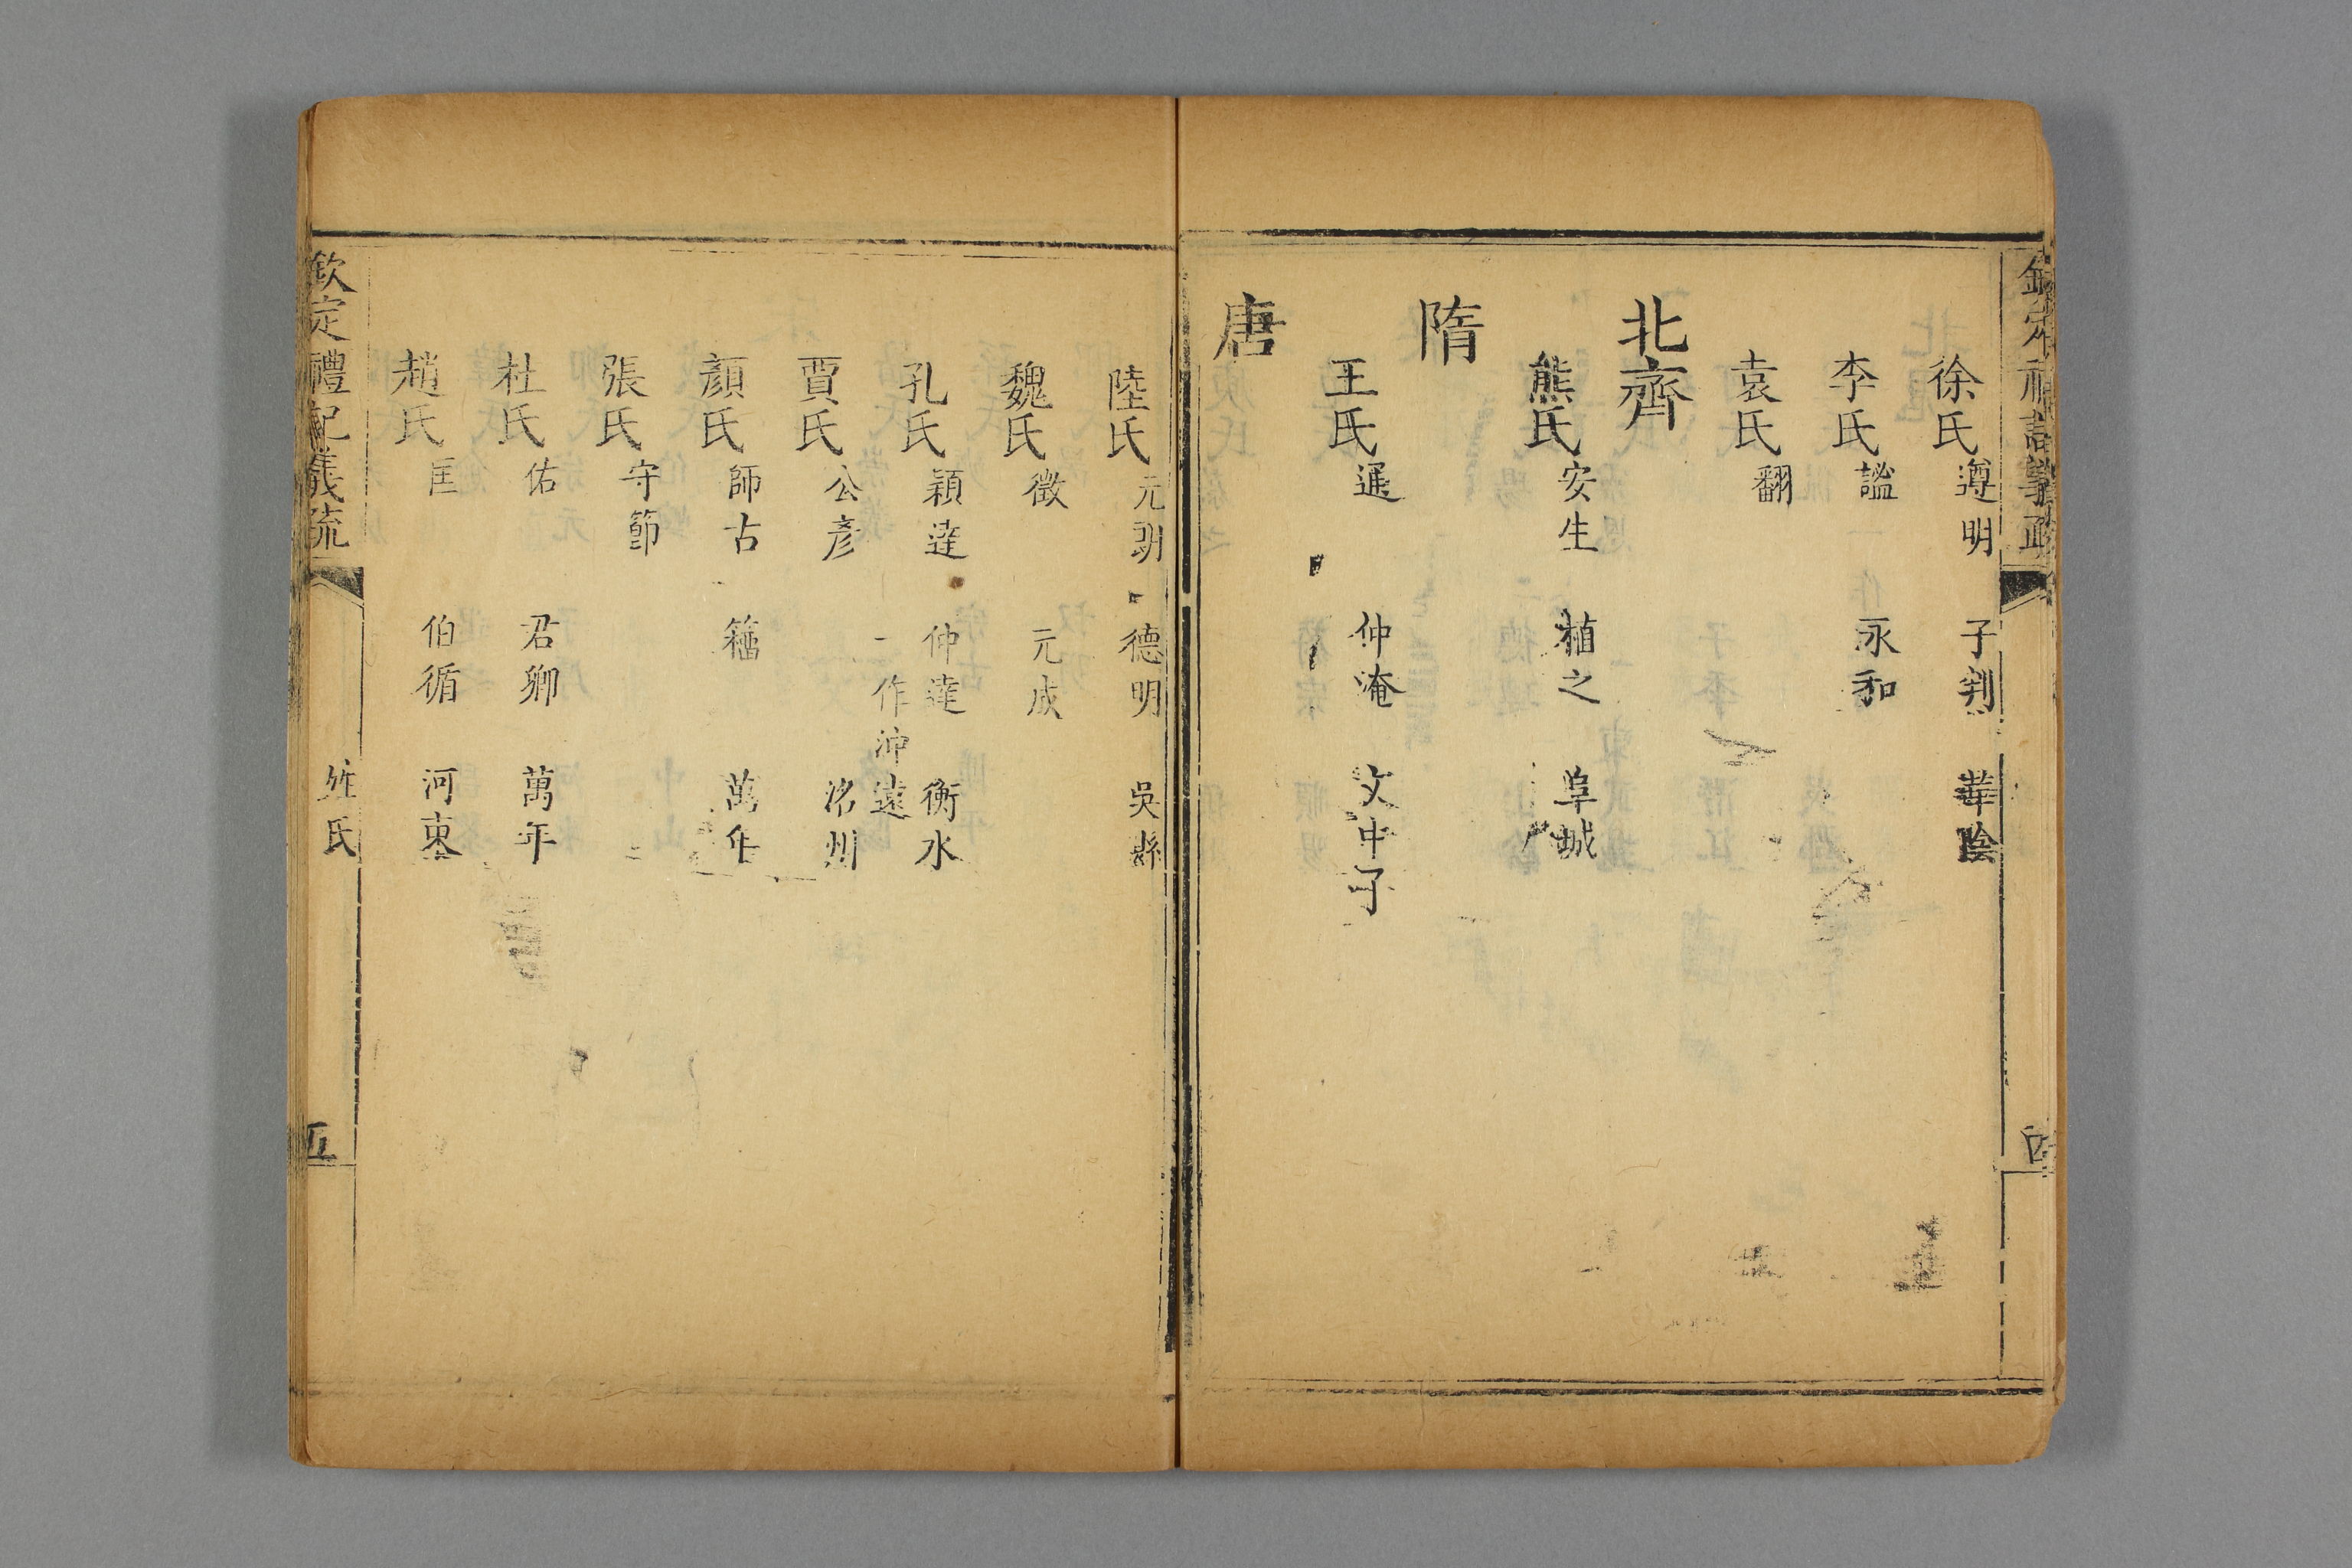 徐氏 遵明 子判 華陰
李氏 謐 永和
袁氏 翻
北齊
熊氏 安生 植之 阜城
隋
王氏 通 仲淹 文中子
唐
陸氏 元朗 德明 吳縣
魏氏 徵 元成
孔氏 穎達 仲達 一作沖遠 衡水
賈氏 公彥 洺州
顏氏 師古 籀 萬年
張氏 守節
杜氏 佑 君卿 萬年
趙氏 匡 伯循 河東
欽定禮記義疏 姓氏 五